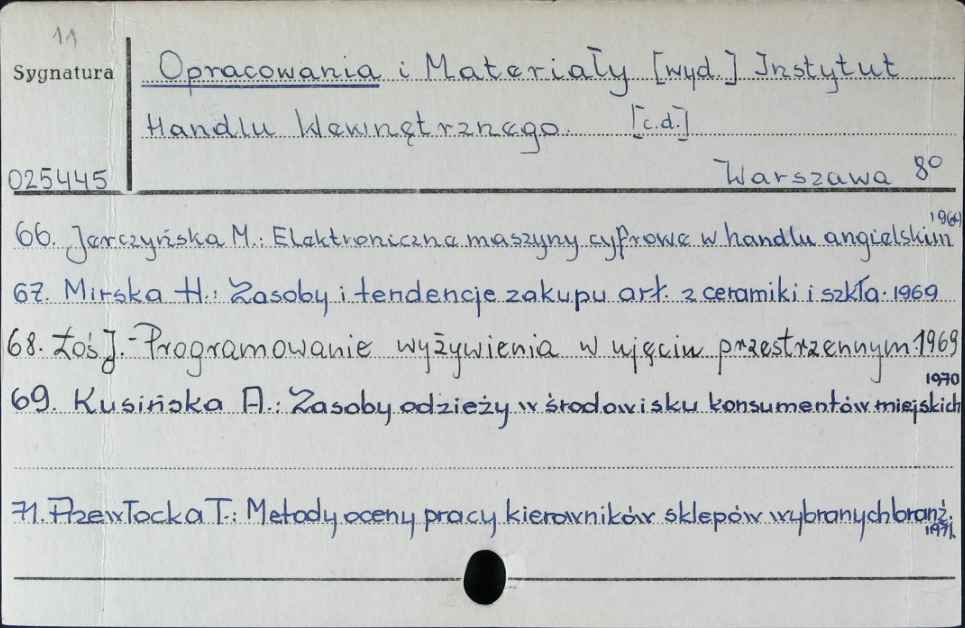 11
Sygnatura
Opracowania i Materiały [wyd.] Instytut
Handlu Wewnętrznego. [c.d.]
025445
Warszawa 8°
66. Jarczyńska M.: Elektroniczne maszyny cyfrowe w handlu angielskim 1969
67. Mirska H.: Zasoby i tendencje zakupu art. z ceramiki i szkła. 1969
68. Łoś J. - Programowanie wyżywienia w ujęciu przestrzennym 1969
69. Kusińska A.: Zasoby odzieży w środowisku konsumentów miejskich 1970
71. Przewłocka T.: Metody oceny pracy kierowników sklepów wybranych branż. 1971.